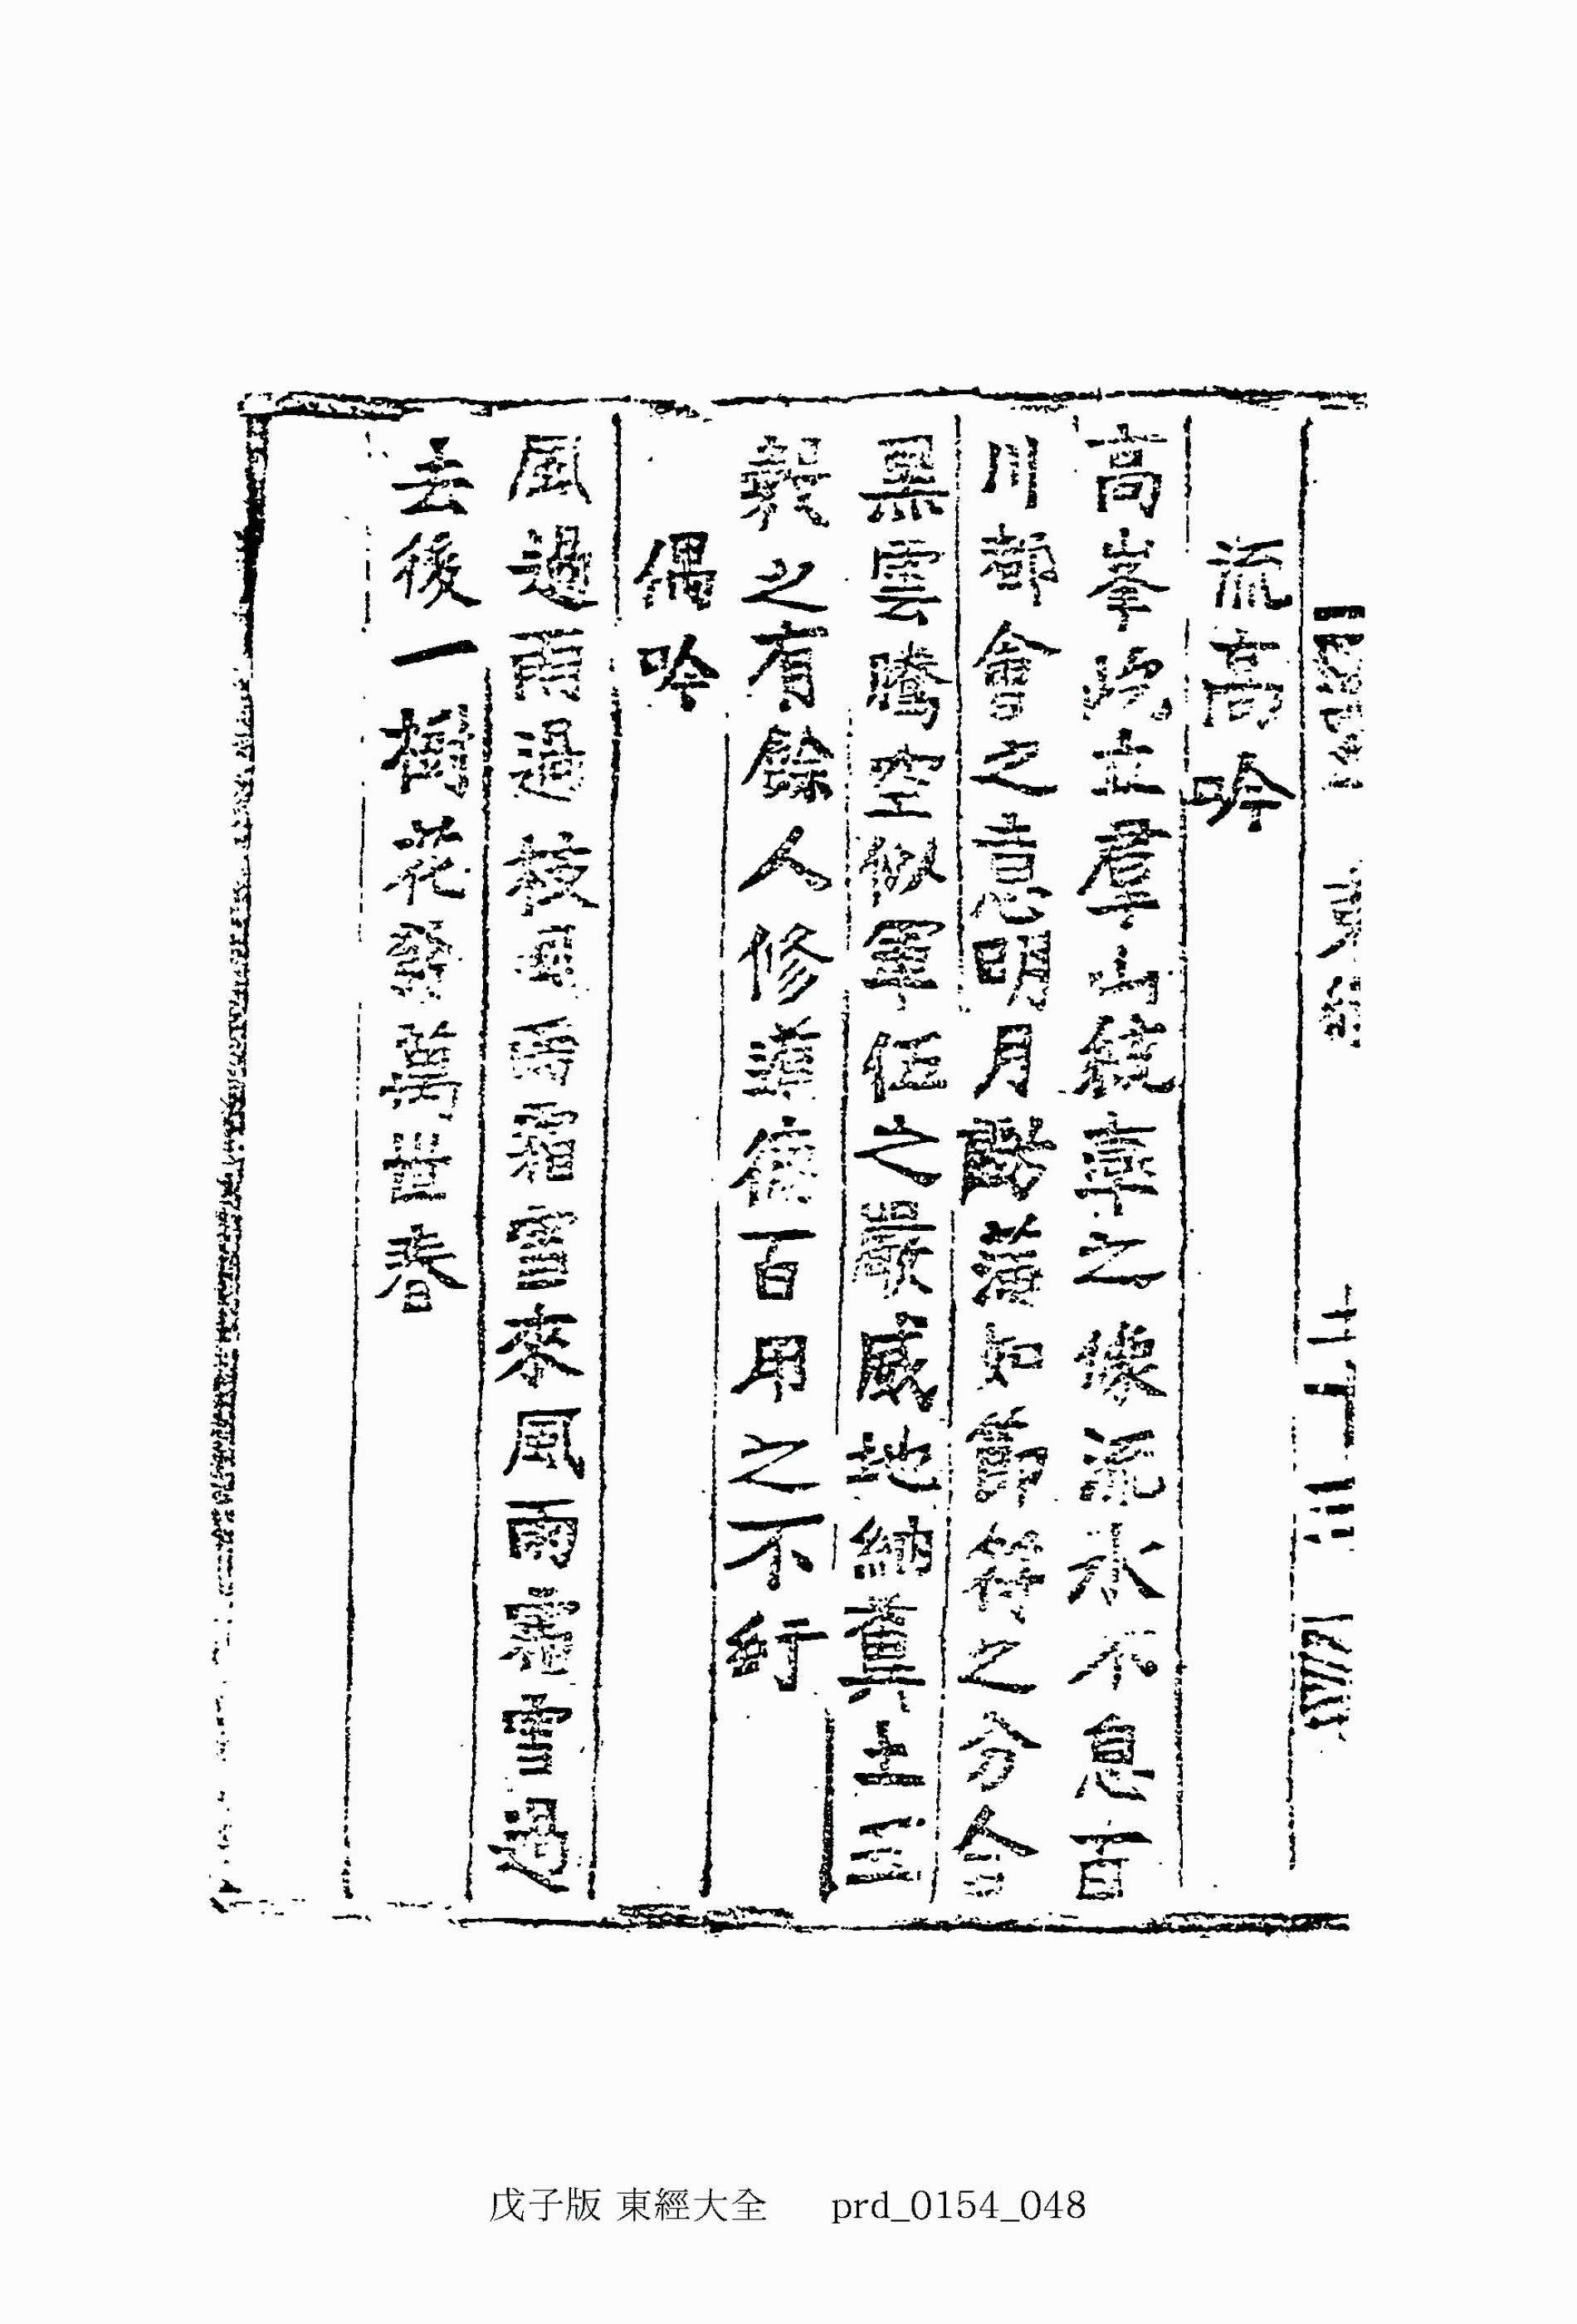 流高吟
高峯屹立羣山統率之像流水不息百
川都會之意明月虧滿如節符之分合
黑雲騰空似軍伍之嚴威地納糞土五
穀之有餘人修道德百用之不紆
偶吟
風過雨過枝風雨霜雪來風雨霜雪過
去後一樹花發萬世春
戊子版 東經大全 prd_0154_048